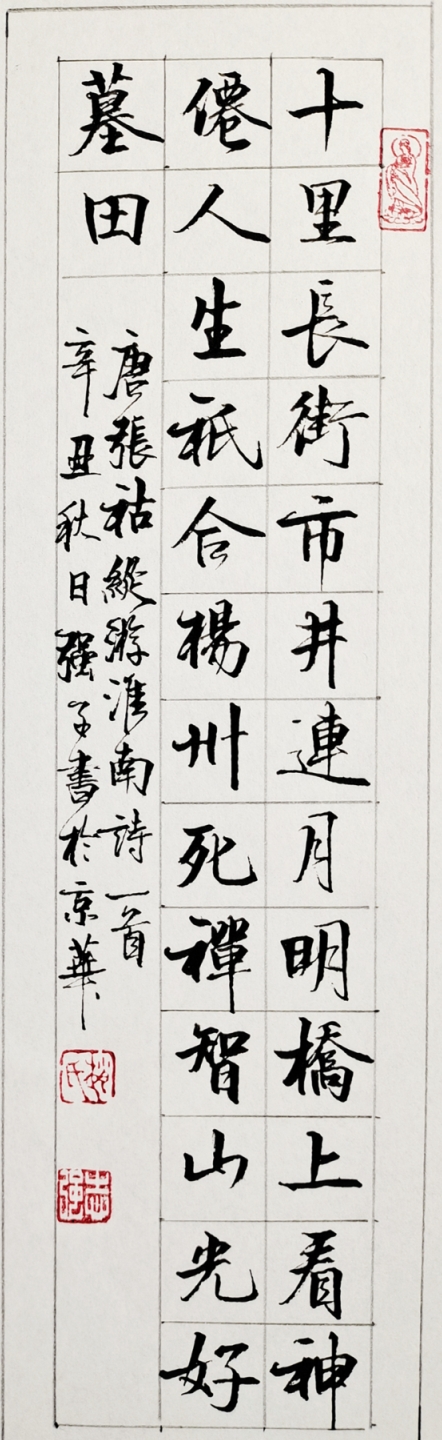 十里長街市井連月明橋上看神
僊人生祇合楊州死禪智山光好
墓田
唐張祜縱游淮南詩一首
辛丑秋日强子書於京華